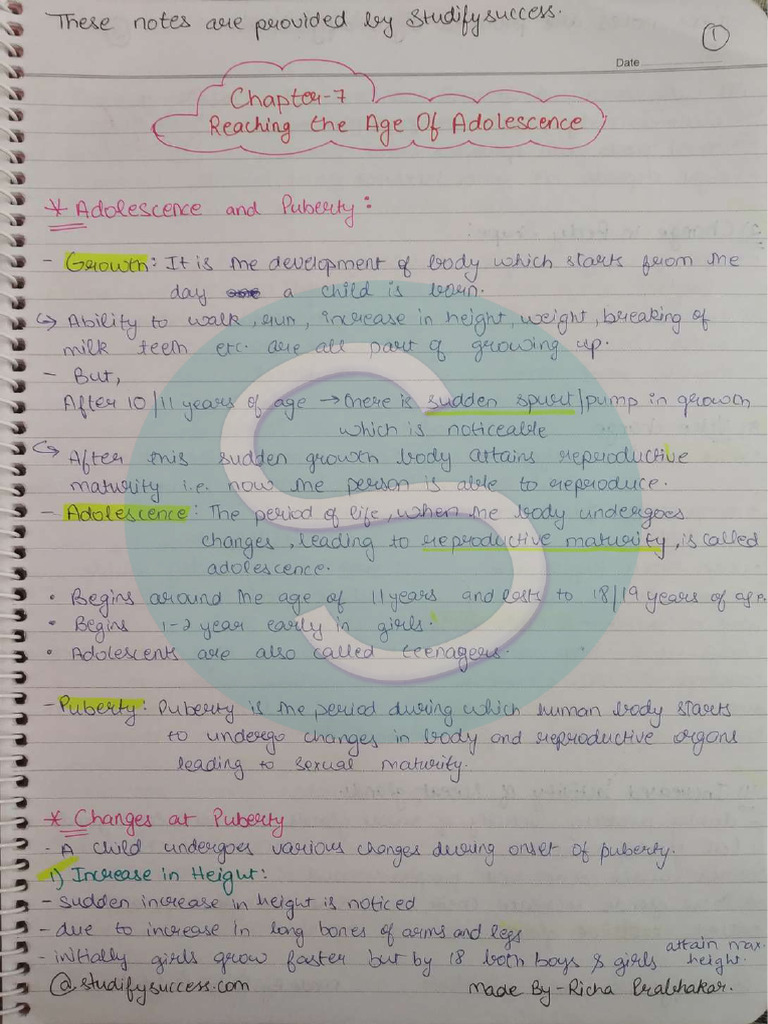 These notes are provided by Studifysuccess.
1
Date
Chapter-7
Reaching the Age Of Adolescence
* Adolescence and Puberty:
- Growth: It is the development of body which starts from the
day a child is born.
↪ Ability to walk, run, increase in height, weight, breaking of
milk teeth etc. are all part of growing up.
- But,
After 10/11 years of age → there is sudden spurt/pump in growth
which is noticeable
↪ After this sudden growth body attains reproductive
maturity i.e. now the person is able to reproduce.
- Adolescence: The period of life, when the body undergoes
changes, leading to reproductive maturity, is called
adolescence.
• Begins around the age of 11 years and lasts to 18/19 years of age.
• Begins 1-2 year early in girls.
• Adolescents are also called teenagers.
- Puberty: Puberty is the period during which human body starts
to undergo changes in body and reproductive organs
leading to sexual maturity.
* Changes at Puberty
- A child undergoes various changes during onset of puberty.
1) Increase in Height:
- sudden increase in height is noticed
- due to increase in long bones of arms and legs
- initially girls grow faster but by 18 both boys & girls attain max. height.
@studifysuccess.com made By - Richa Prabhakar.